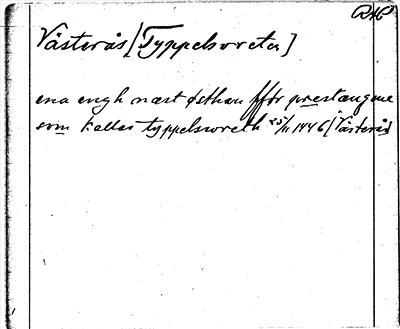 RHP
Västerås [Typpelsvreta]
ena engh næst østhan ffór prestængme
som kallas typpelswreth 25/11 1446 [Västerås]